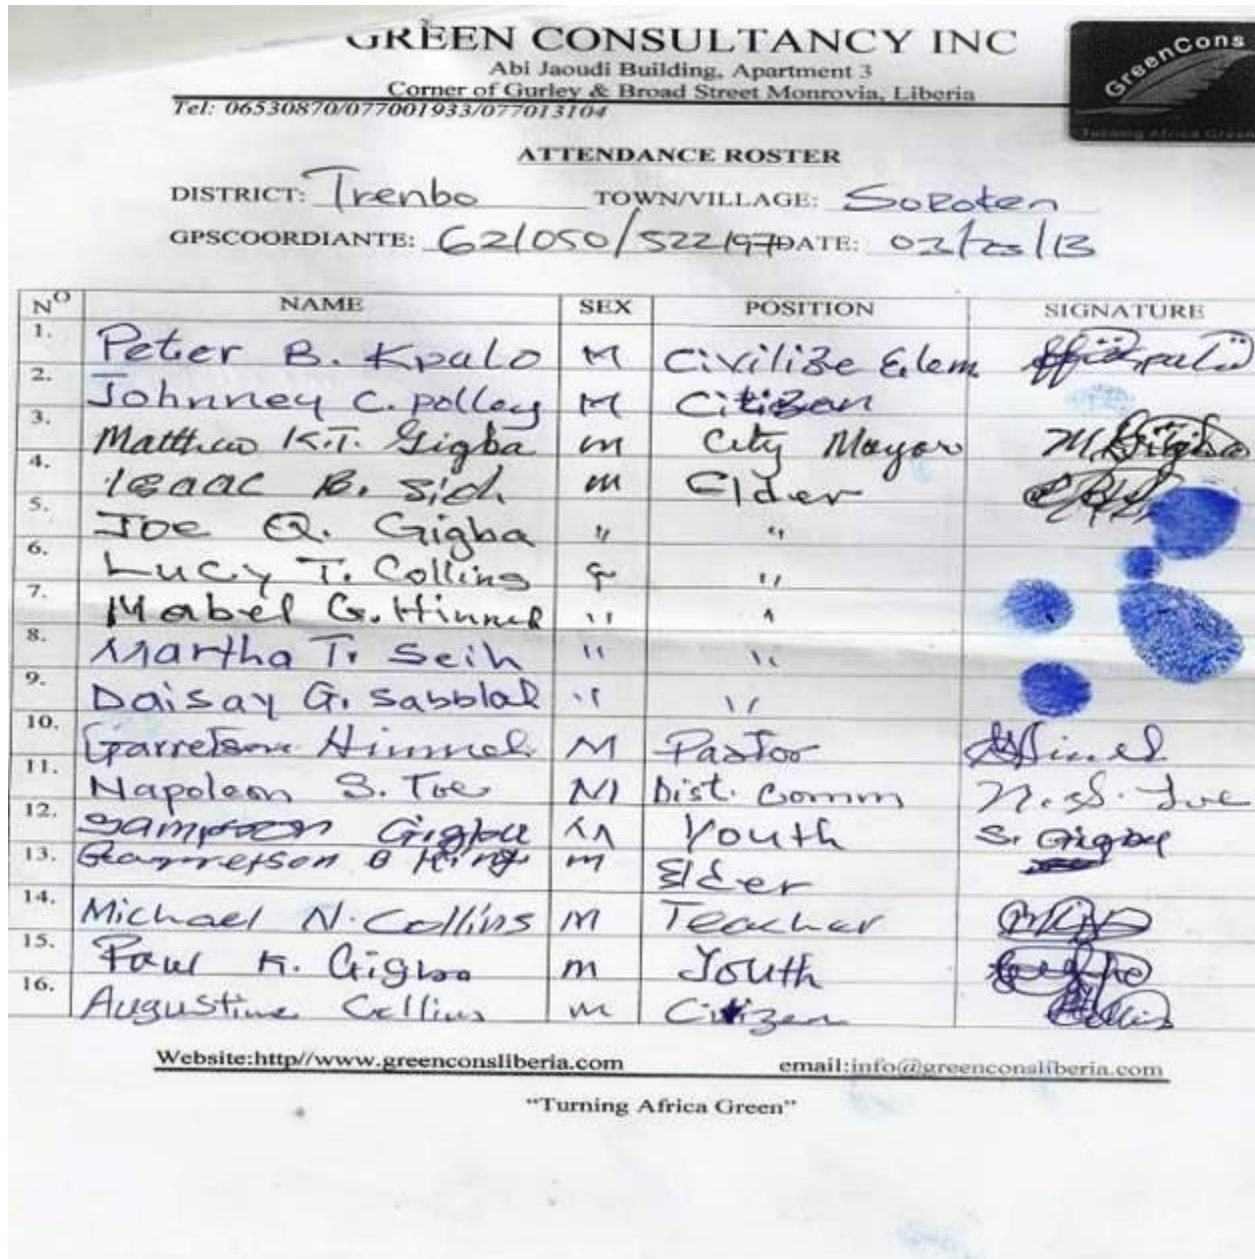 GREEN CONSULTANCY INC
GreenCons
Abi Jaoudi Building, Apartment 3
Corner of Gurley & Broad Street Monrovia, Liberia
Tel: 06530870/077001933/077013104
Turning Africa Green
ATTENDANCE ROSTER
DISTRICT: Trenbo TOWN/VILLAGE: Soroken
GPSCOORDIANTE: 621050/522197 DATE: 02/25/13
NO NAME SEX POSITION SIGNATURE
1. Peter B. Kpalo M Civilize Elem
2. Johnney C. Polley M Citizen
3. Matthew K.T. Gigba m City Mayor M. Gigba
4. Isaac B. Sieh m Elder
5. Joe Q. Gigba " "
6. Lucy T. Colling F "
7. Mabel G. Himmel " "
8. Martha T. Seih " "
9. Daisay G. Sabblal " "
10. Garretson Himmel M Pastor
11. Napoleon S. Toe M Dist. Comm N.S. Toe
12. Sampson Gigba M Youth S. Gigba
13. Garretson B King m Elder
14. Michael N. Collins M Teacher
15. Paul K. Gigba m Youth
16. Augustine Collins m Citizen
Website:http//www.greenconsliberia.com email:info@greenconsliberia.com
"Turning Africa Green"